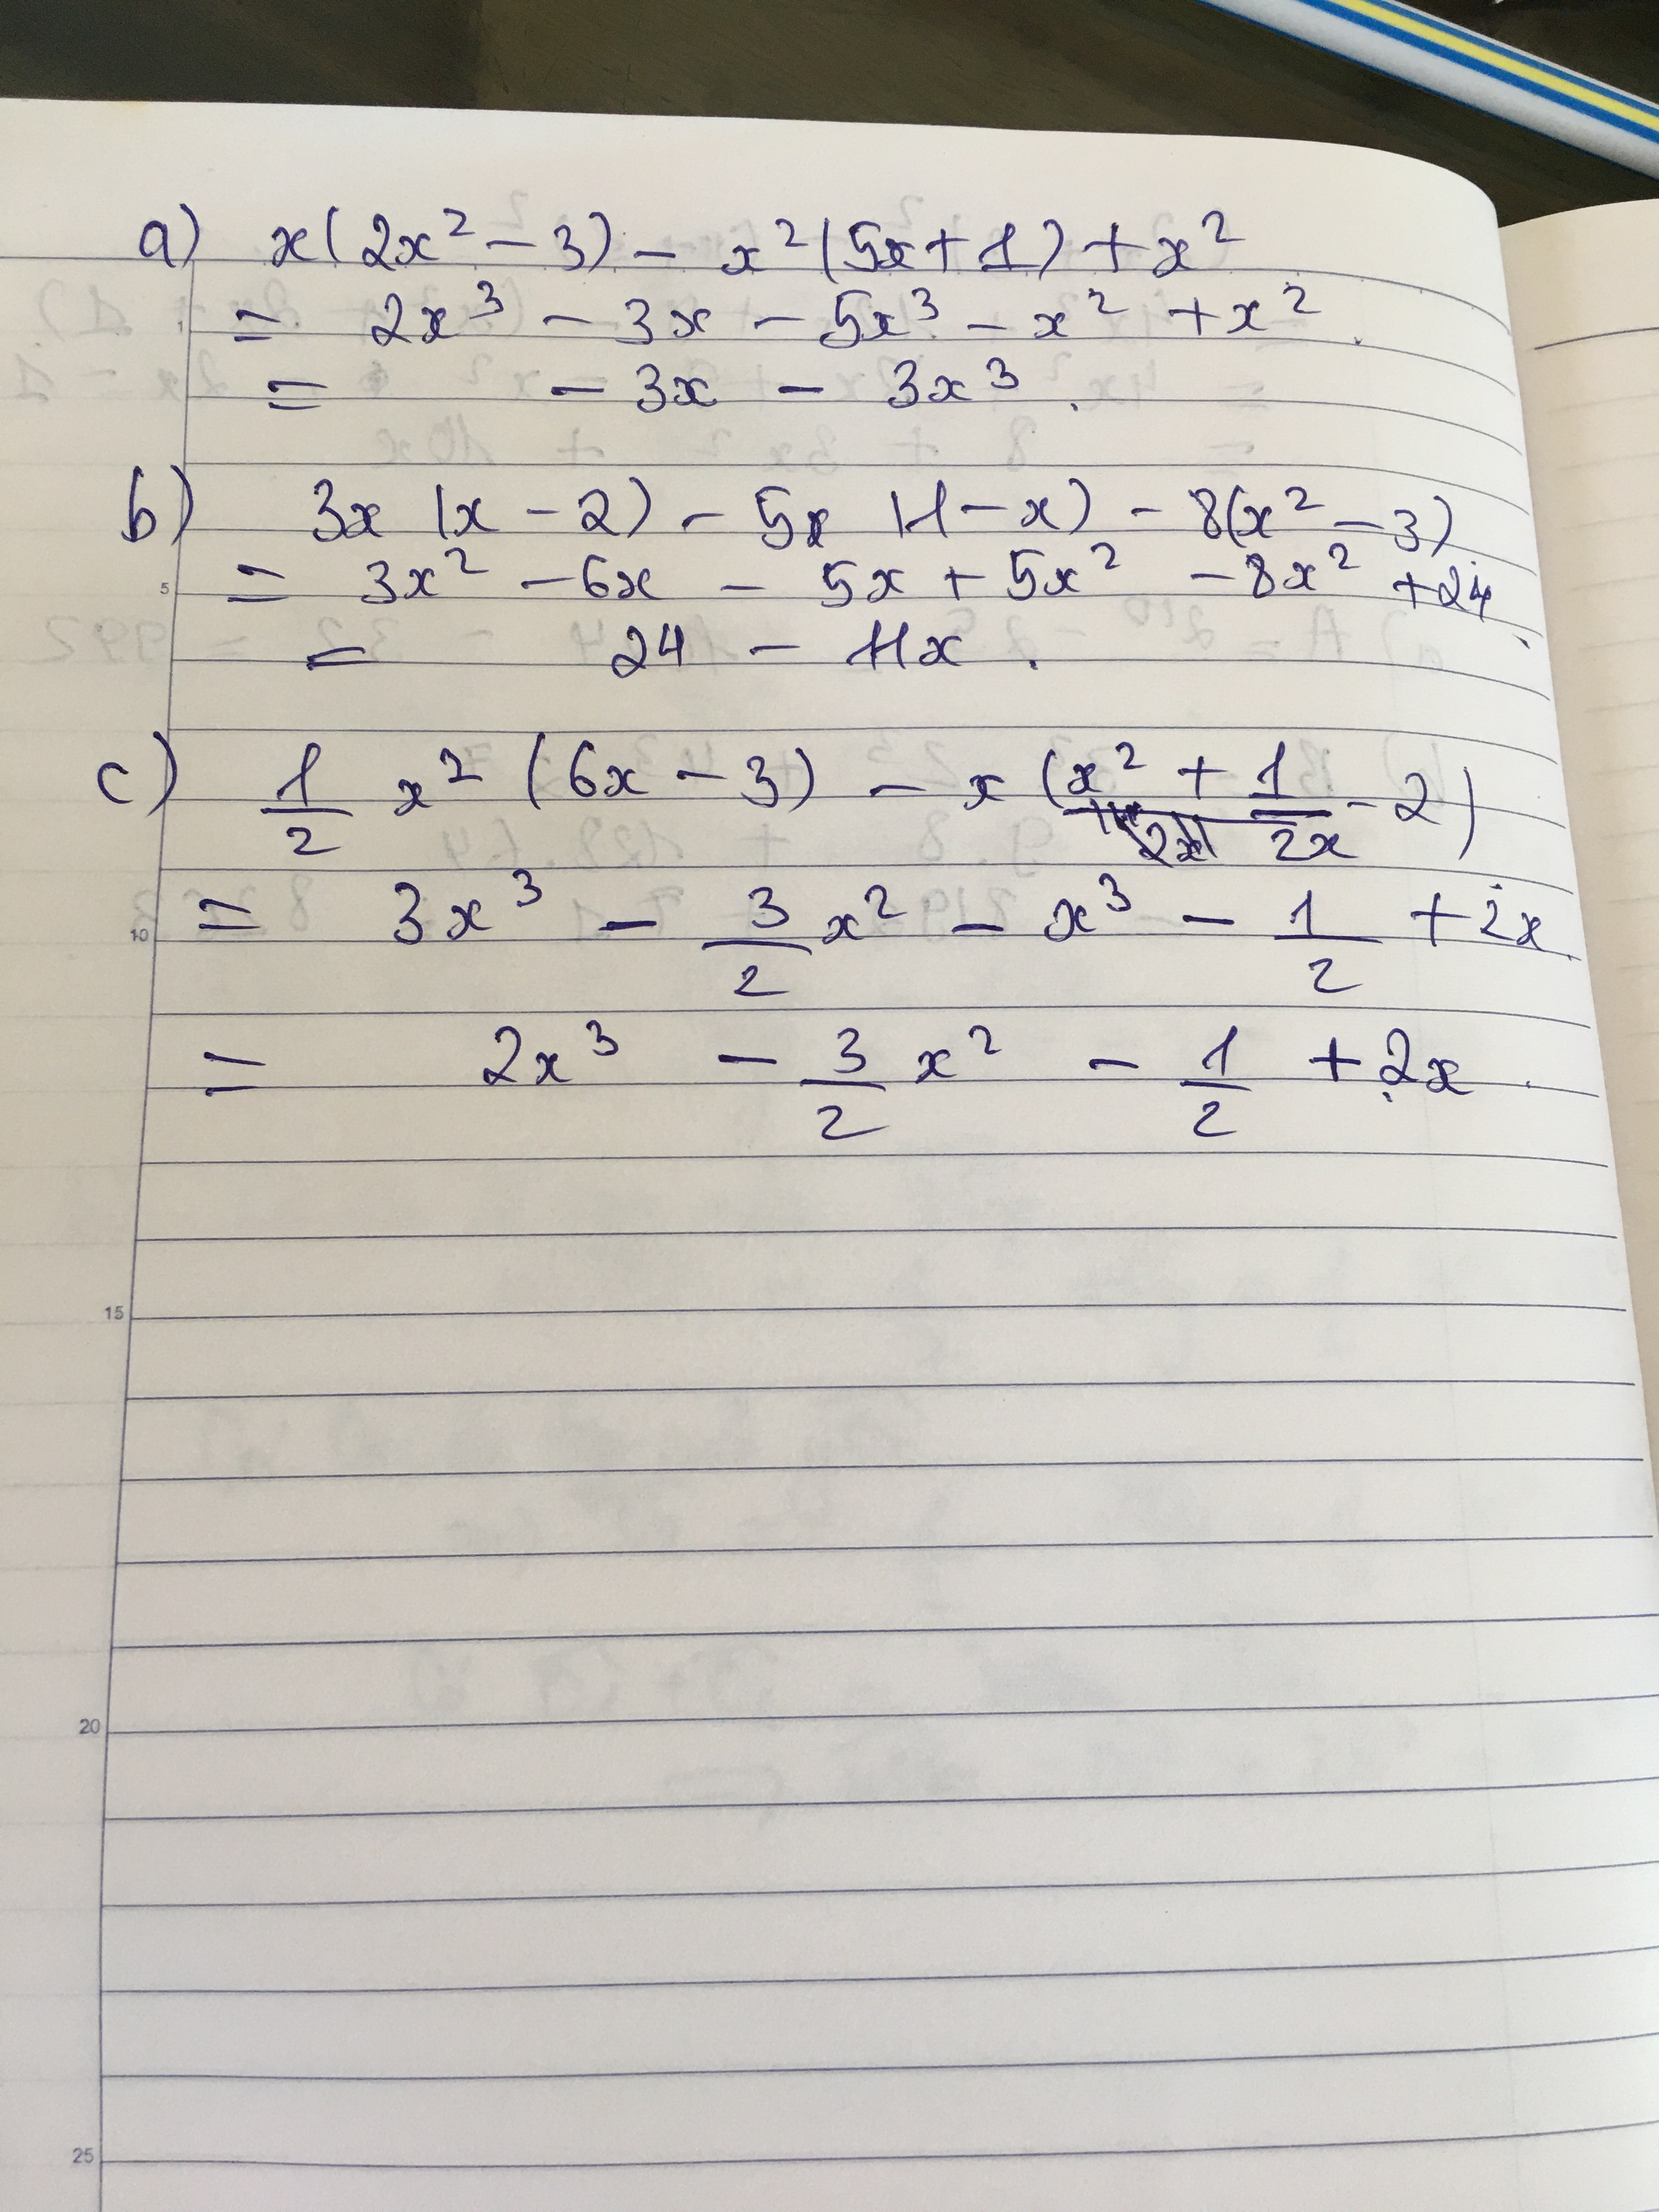 a) x(2x² − 3) − x²(5x + 1) + x²
= 2x³ − 3x − 5x³ − x² + x².
= − 3x − 3x³.
b) 3x (x − 2) − 5x (1 − x) − 8(x² − 3)
= 3x² − 6x − 5x + 5x² − 8x² + 24.
5
= 24 − 11x.
c) 1/2 x² (6x − 3) − x (x² + 1/2x − 2)
= 3x³ − 3/2 x² − x³ − 1/2 + 2x.
10
= 2x³ − 3/2 x² − 1/2 + 2x.
15
20
25